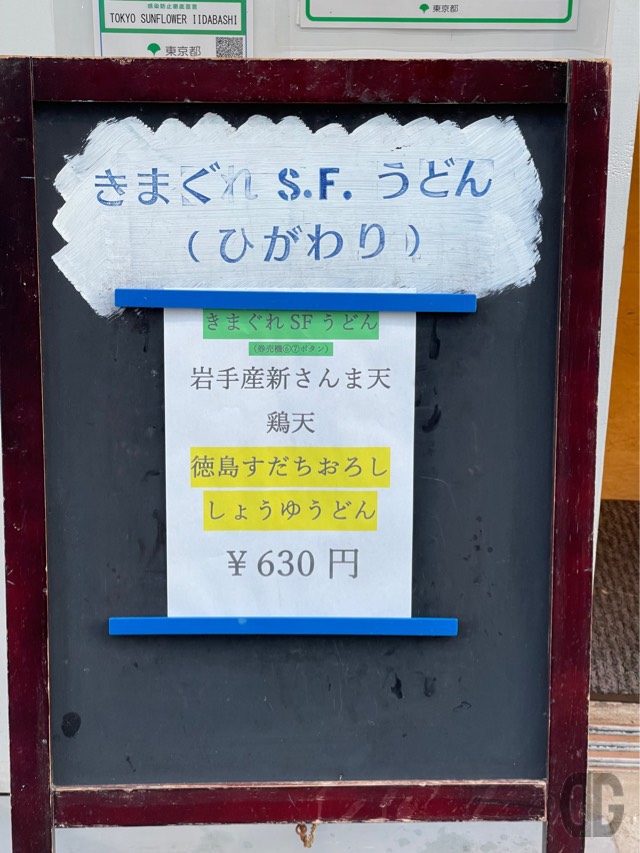 感染防止徹底宣言
TOKYO SUNFLOWER IIDABASHI
東京都
東京都
きまぐれ S.F. うどん
(ひがわり)
きまぐれSFうどん
(券売機⑥⑦ボタン)
岩手産新さんま天
鶏天
徳島すだちおろし
しょうゆうどん
¥630円